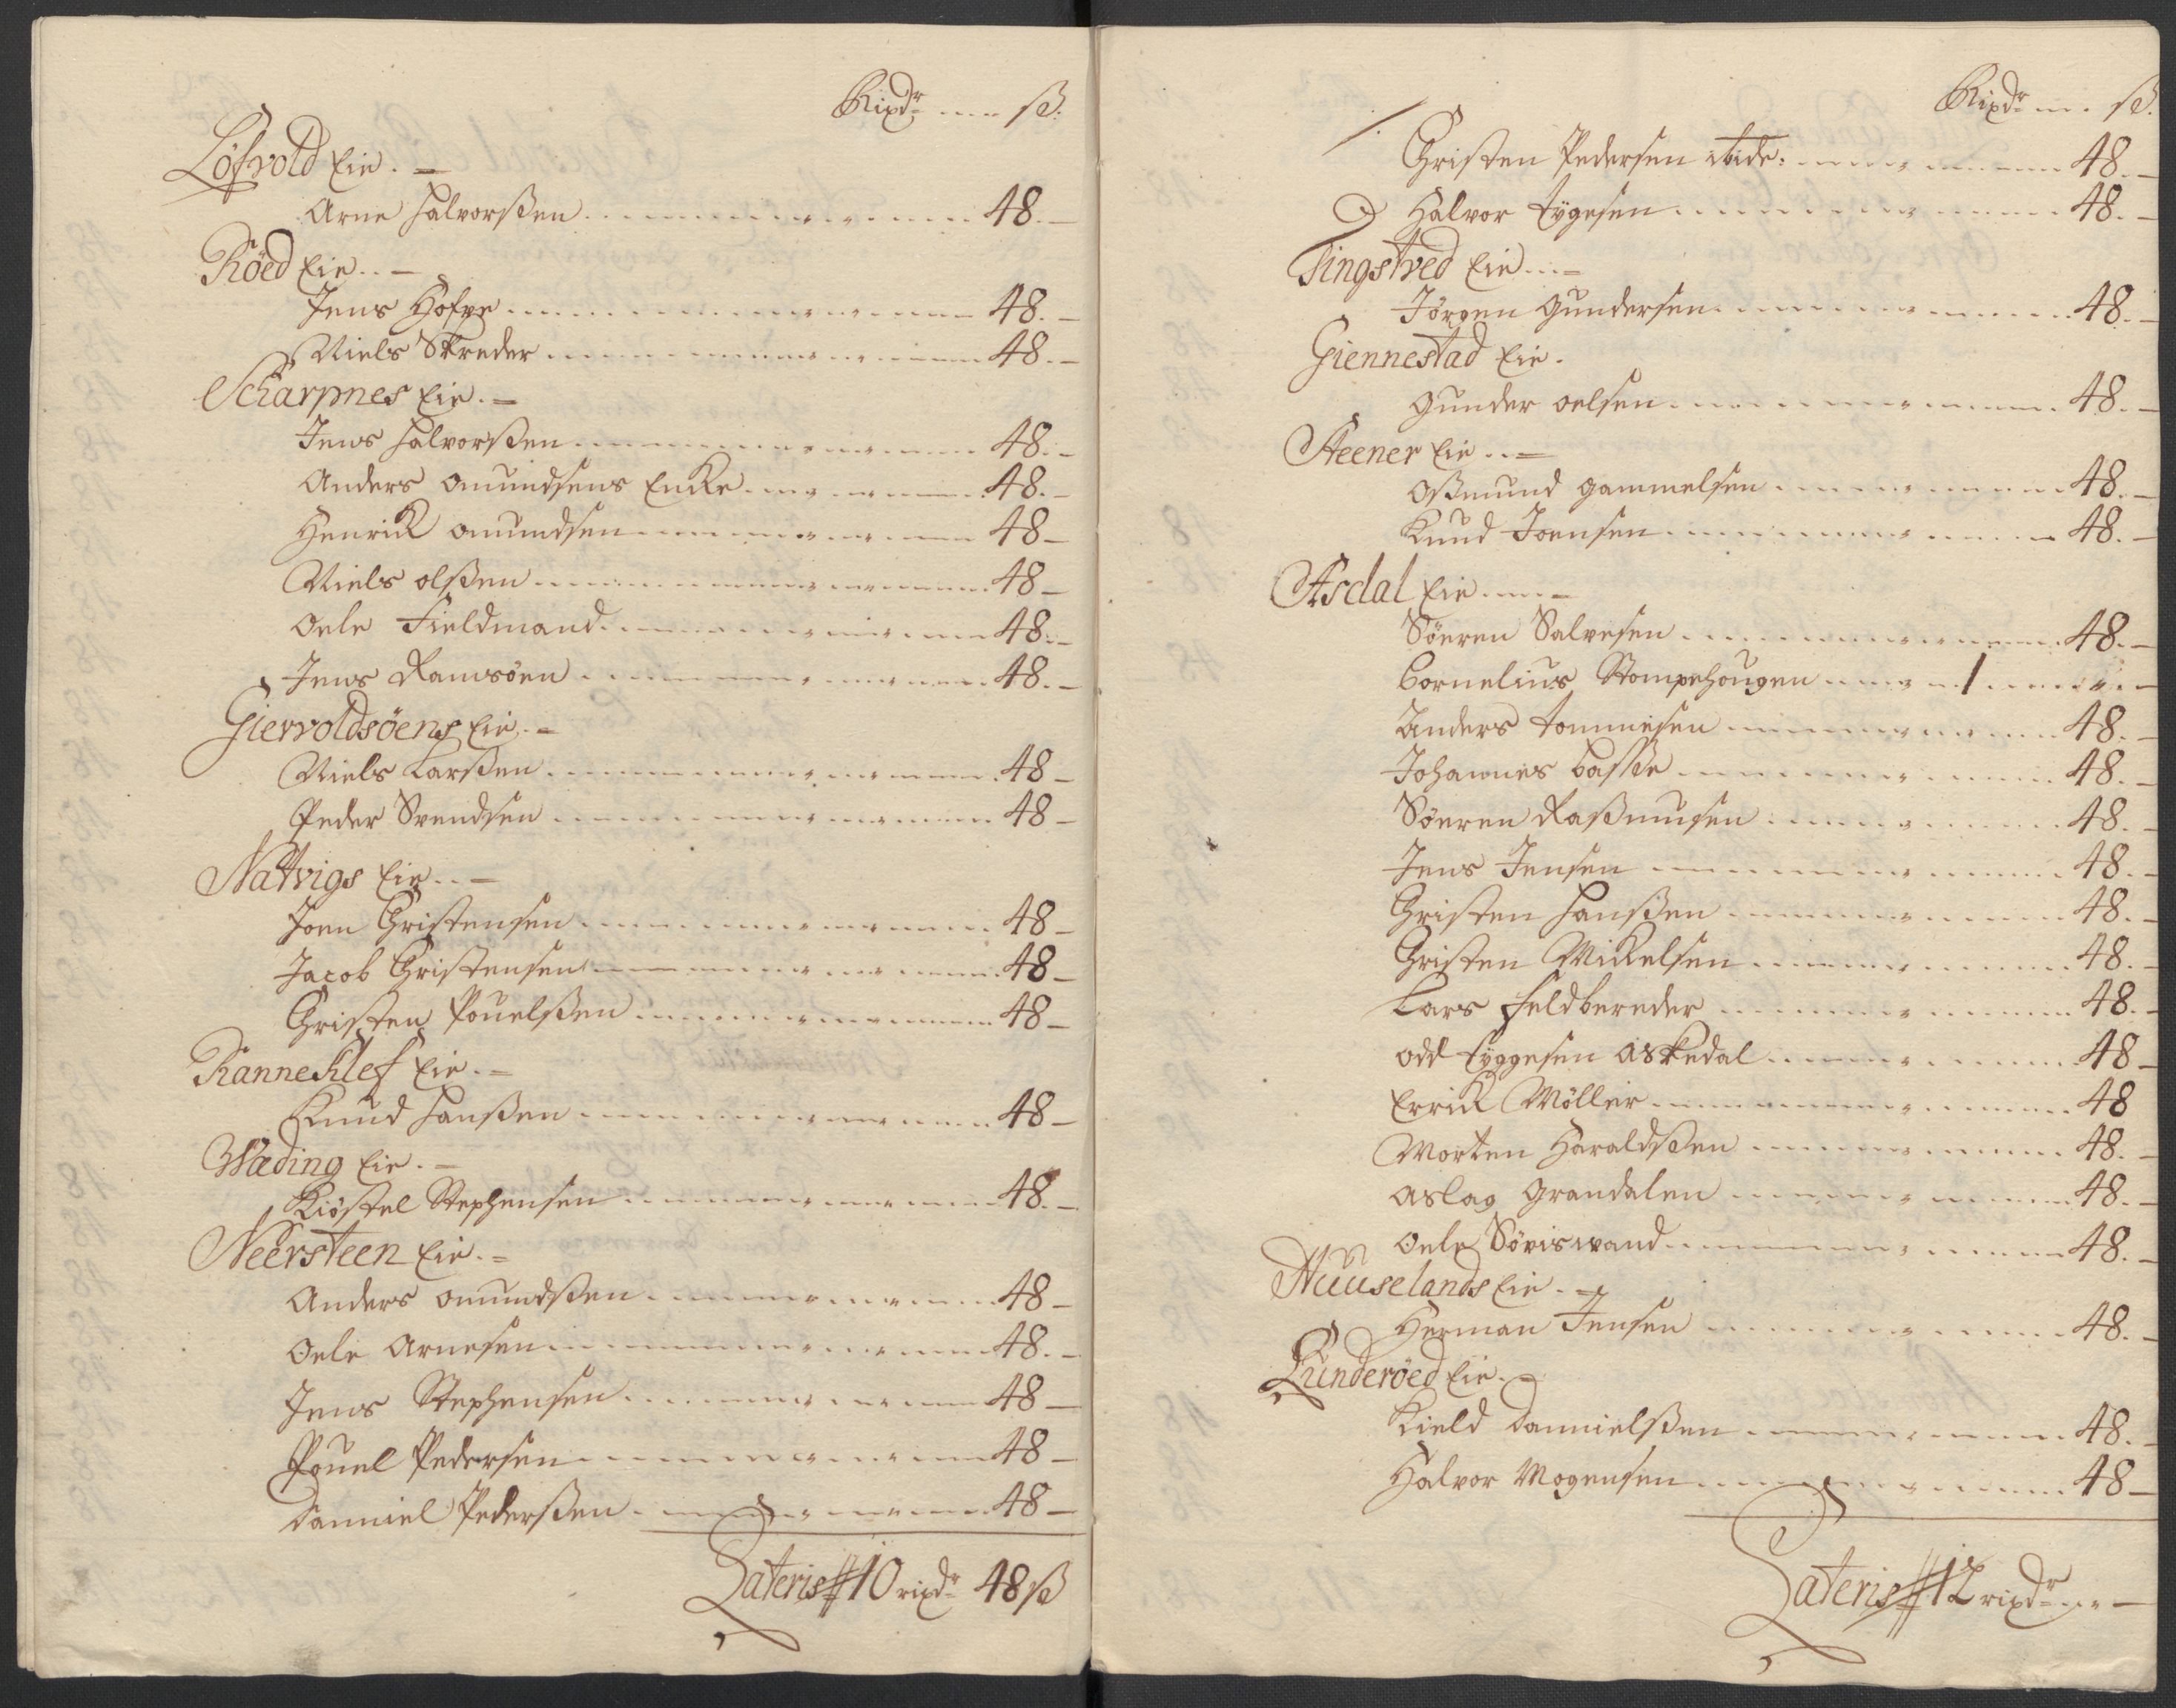 Rixdr ... ß.
Løfvold Eie. =
Arne Halvorßen ... 48. —
Röed Eie.. —
Jens Hofve ... 48. —
Niels Skreder ... 48. —
Scharpnes Eie. =
Jens Halvorßen ... 48. -
Anders Omundsens Encke ... 48. —
Henrick Omundsen ... 48 —
Niels Olßen ... 48 —
Oele Fieldmand ... 48. —
Jens Ramsöen ... 48. —
Giervoldsöens Eie. =
Niels Larßen ... 48 —
Peder Svendsen ... 48 —
Natvigs Eie.. —
Joen Christensen ... 48 —
Jacob Christensen ... 48 —
Christen Pouelßen ... 48 —
Ranneklef Eie. =
Knud Hanßen ... 48 —
Wæding Eie. =
Kiøstel Stephensen ... 48. —
Neersteen Eie. =
Anders Omundßen ... 48 —
Oele Arnesen ... 48. —
Jens Stephensen ... 48 —
Pouel Pedersen ... 48 —
Danniel Pederßen ... 48 —
Lateris # 10 rixdr 48 ß
Rixdr ... ß.
Christen Pedersen ibide: ... 48. —
Halvor Tygesen ... 48. —
Tingstved Eie... =
Jörgen Gundersen ... 48. —
Giennestad Eie.
Gunder Oelsen ... 48. —
Steener Eie.. =
Oßmund Gammelsen ... 48. —
Knud Joensen ... 48. —
Asdal Eie .... =
Söeren Salvesen ... 48. —
Cornelius Stompehougen ... 1 ... —
Anders Tommesen ... 48. —
Johannes Basse ... 48. —
Söeren Raßmusen ... 48. —
Jens Jensen ... 48. —
Christen Hanßen ... 48. —
Christen Mickelsen ... 48. —
Lars Feldbereder ... 48. —
Odd Tyggesen Askedal ... 48 —
Errick Möller ... 48
Morten Haraldßen ... 48. —
Aslag Grandalen ... 48. —
Oele Söviswand ... 48. —
Huuselands Eie. =
Herman Jensen ... 48. —
Lunderöed Eie. =
Kield Dannielßen ... 48. —
Halvor Mogensen ... 48 —
Lateris # 12 rixdr ... —